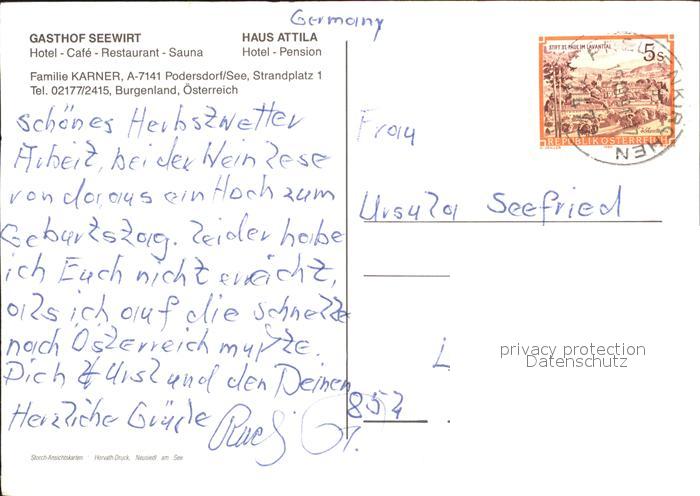 Germany
GASTHOF SEEWIRT
Hotel - Café - Restaurant - Sauna
HAUS ATTILA
Hotel - Pension
Familie KARNER, A-7141 Podersdorf/See, Strandplatz 1
Tel. 02177/2415, Burgenland, Österreich
schönes Herbstwetter
Arbeit, bei der Weinlese
von daraus ein Hoch zum
Geburtstag. Leider habe
ich Euch nicht erreicht,
als ich auf die schnelle
nach Österreich mußte.
Dich Ursl und den Deinen
Herzliche Grüße
Storch-Ansichtskarten Horvath-Druck, Neusiedl am See
STIFT ST. PAUL IM LAVANTTAL
5s
REPUBLIK ÖSTERREICH
Frau
Ursula Seefried
L
privacy protection
Datenschutz
852